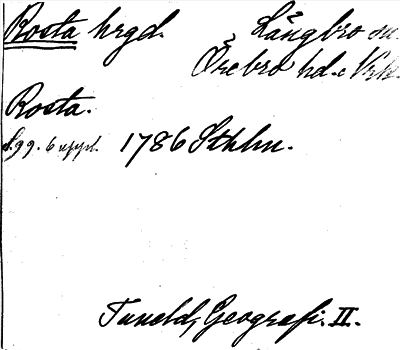 Rosta hrgd. Långbro sn
Örebro hd.
Rosta.
6 uppl. 1786 Sthlm.
Tuneld, Geografi. II.